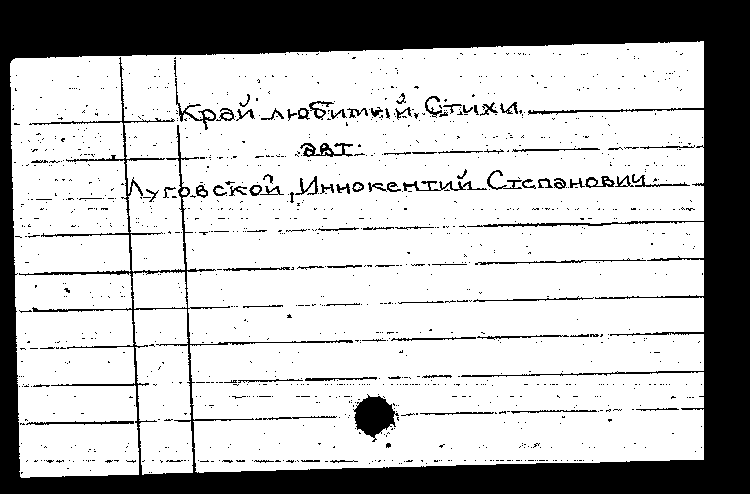 Край любимый. Стихи.
авт.
Луговской, Иннокентий Степанович.